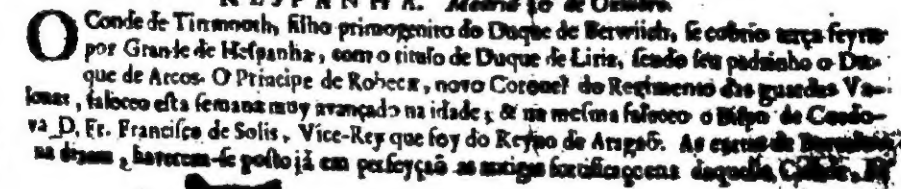 HESPANHA. Madrid 30 de Outubro.
O Conde de Tinmouth, filho primogenito do Duque de Berwiich, se cobrio terça feyra
por Grande de Hespanha, com o titulo de Duque de Liria, sendo seu padrinho o Du-
que de Arcos. O Principe de Robecx, novo Coronel do Regimento das guardas Va-
lonas, faleceo esta semana muy avançado na idade; & na mesma faleceo o Bispo de Cordo-
va D. Fr. Francisco de Solis, Vice-Rey que foy do Reyno de Aragaõ. As cartas de
na dizem, haverem-se posto já em perfeyçaõ as antigas fortificaçoens daquella